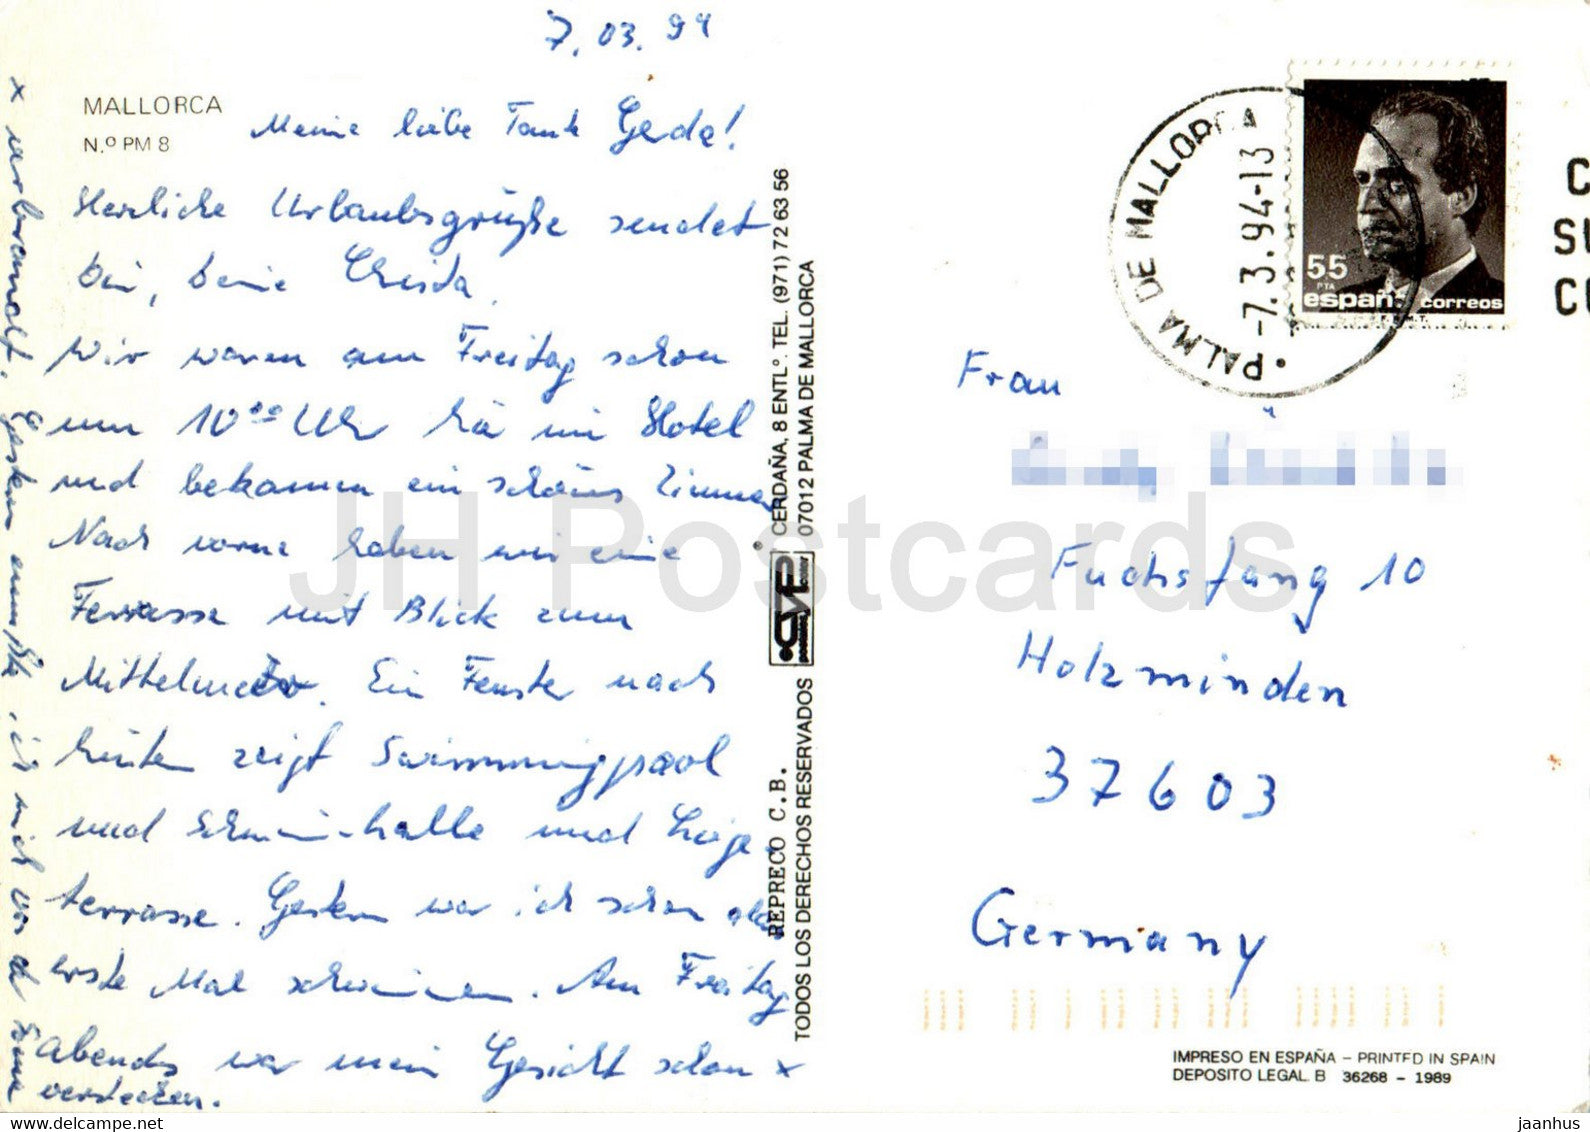 7.03.94
MALLORCA
N.º PM 8
Meine liebe Tante Gerda!
Herzliche Urlaubsgrüße sendet
Dir, Deine Christa.
Wir waren am Freitag schon
um 10°° Uhr hier im Hotel
und bekamen ein schönes Zimmer
Nach vorne haben wir eine
Terrasse mit Blick zum
Mittelmeer. Ein Fenster nach
hinten zeigt Swimmingpool
und Schwimmhalle und Liege-
terrasse. Gestern war ich schon das
erste Mal schwimmen. Am Freitag
abends war mein Gesicht schon x
x verbrannt. Gestern mußte ich mich vor der Sonne
verstecken.
CERDAÑA, 8 ENTLº. TEL. (971) 72 63 56
07012 PALMA DE MALLORCA
CYP
REPRECO C.B.
TODOS LOS DERECHOS RESERVADOS
PALMA DE MALLORCA
-7.3.94-13
55
PTA
españa correos
F.N.M.T.
C
SU
CO
Frau
Fuchsfang 10
Holzminden
37603
Germany
IMPRESO EN ESPAÑA – PRINTED IN SPAIN
DEPOSITO LEGAL. B 36268 – 1989
JH Postcards
delcampe.net
jaanhus